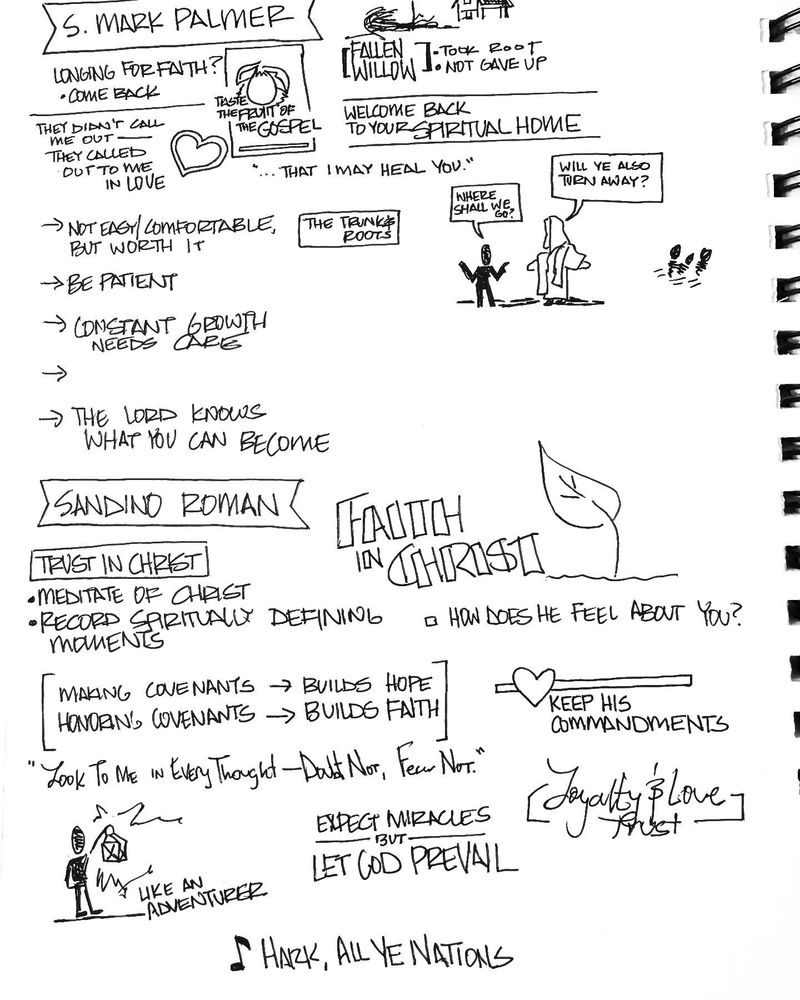 S. MARK PALMER
LONGING FOR FAITH?
• COME BACK
THEY DIDN'T CALL
ME OUT
THEY CALLED
OUT TO ME
IN LOVE
TASTE
THE FRUIT OF
THE GOSPEL
[FALLEN
WILLOW]
• TOOK ROOT
• NOT GAVE UP
WELCOME BACK
TO YOUR SPIRITUAL HOME
"... THAT I MAY HEAL YOU."
WHERE
SHALL WE
GO?
WILL YE ALSO
TURN AWAY?
→ NOT EASY/COMFORTABLE,
BUT WORTH IT
THE TRUNK &
ROOTS
→ BE PATIENT
→ CONSTANT GROWTH
NEEDS CARE
→
→ THE LORD KNOWS
WHAT YOU CAN BECOME
SANDINO ROMAN
FAITH
IN CHRIST
TRUST IN CHRIST
• MEDITATE OF CHRIST
• RECORD SPIRITUALLY DEFINING
MOMENTS
□ HOW DOES HE FEEL ABOUT YOU?
[MAKING COVENANTS → BUILDS HOPE
HONORING COVENANTS → BUILDS FAITH]
KEEP HIS
COMMANDMENTS
"Look To Me in Every Thought — Doubt Not, Fear Not."
[Loyalty & Love]
Trust
LIKE AN
ADVENTURER
EXPECT MIRACLES
BUT
LET GOD PREVAIL
♪ HARK, ALL YE NATIONS